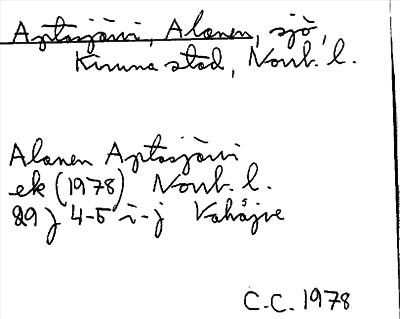 Aptasjärvi, Alanen, sjö,
Kiruna stad, Norrb. l.
Alanen Aptasjärvi
ek (1978) Norrb. l.
29J 4-5 i-j Vahåjve
C.C. 1978